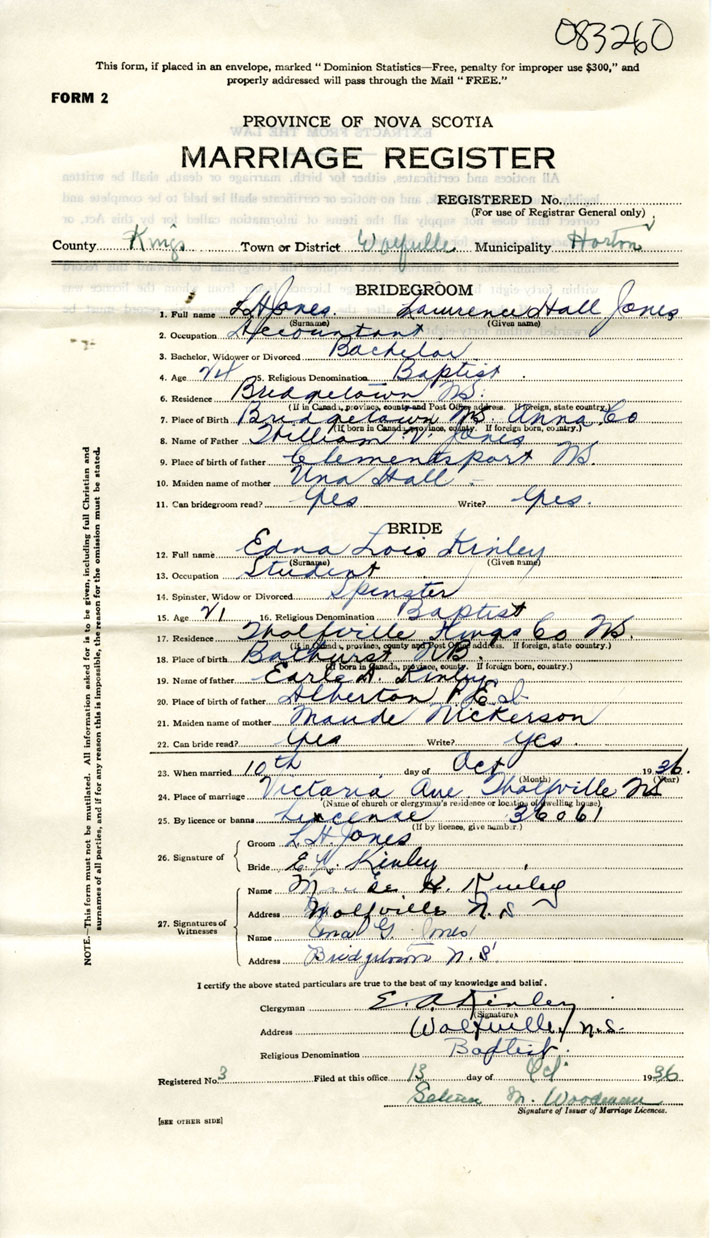 083260
This form, if placed in an envelope, marked "Dominion Statistics—Free, penalty for improper use $300," and
properly addressed will pass through the Mail "FREE."
FORM 2
PROVINCE OF NOVA SCOTIA
MARRIAGE REGISTER
REGISTERED No.
(For use of Registrar General only)
County Kings Town or District Wolfville Municipality Horton
BRIDEGROOM
1. Full name L H Jones. Lawrence Hall Jones
(Surname) (Given name)
2. Occupation Accountant.
3. Bachelor, Widower or Divorced Bachelor
4. Age 24 5. Religious Denomination Baptist.
6. Residence Bridgetown NS.
(If in Canada, province, county and Post Office address. If foreign, state country.)
7. Place of Birth Bridgetown NS. Anna Co
(If born in Canada, province, county. If foreign born, country.)
8. Name of Father William V. Jones
9. Place of birth of father Clementsport NS.
10. Maiden name of mother Una Hall
11. Can bridegroom read? Yes Write? Yes.
BRIDE
12. Full name Edna Lois Kinley
(Surname) (Given name)
13. Occupation Student
14. Spinster, Widow or Divorced Spinster
15. Age 21 16. Religious Denomination Baptist
17. Residence Wolfville Kings Co NS.
(If in Canada, province, county and Post Office address. If foreign, state country.)
18. Place of birth Bathurst NB.
(If born in Canada, province, county. If foreign born, country.)
19. Name of father Earle A. Kinley
20. Place of birth of father Alberton P.E.Isl.
21. Maiden name of mother Maude Nickerson
22. Can bride read? Yes Write? Yes.
23. When married 10th day of Oct 1936.
(Month) (Year)
24. Place of marriage Victoria Ave Wolfville NS
(Name of church or clergyman's residence or location of dwelling house)
25. By licence or banns Liscense 36061
(If by licence, give number.)
26. Signature of Groom L. H. Jones
Bride E. L. Kinley
27. Signatures of Witnesses
Name H. Kinley
Address Wolfville N.S
Name G. Jones
Address Bridgetown N.S.
I certify the above stated particulars are true to the best of my knowledge and belief.
Clergyman E. A Kinley
(Signature)
Address Wolfville, N.S.
Religious Denomination Baptist.
Registered No. 3 Filed at this office 13 day of Oct. 1936
M. Woodman
Signature of Issuer of Marriage Licences.
[SEE OTHER SIDE]
NOTE.—This form must not be mutilated. All information asked for is to be given, including full Christian and
surnames of all parties, and if for any reason this is impossible, the reason for the omission must be stated.